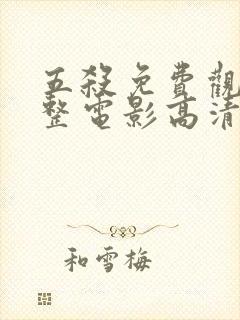 五殺免費觀
整電影高清
和雪梅